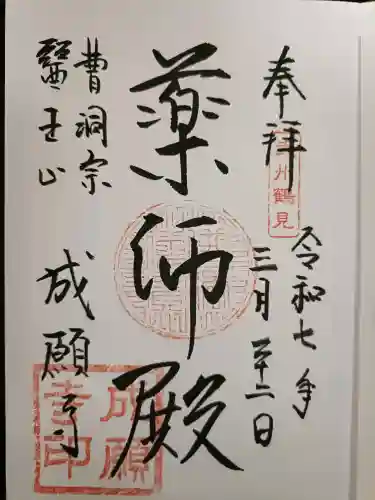 奉拝
州鶴見
令和七年
三月廿二日
薬師殿
曹洞宗
醫王山
成願寺
成願
寺印